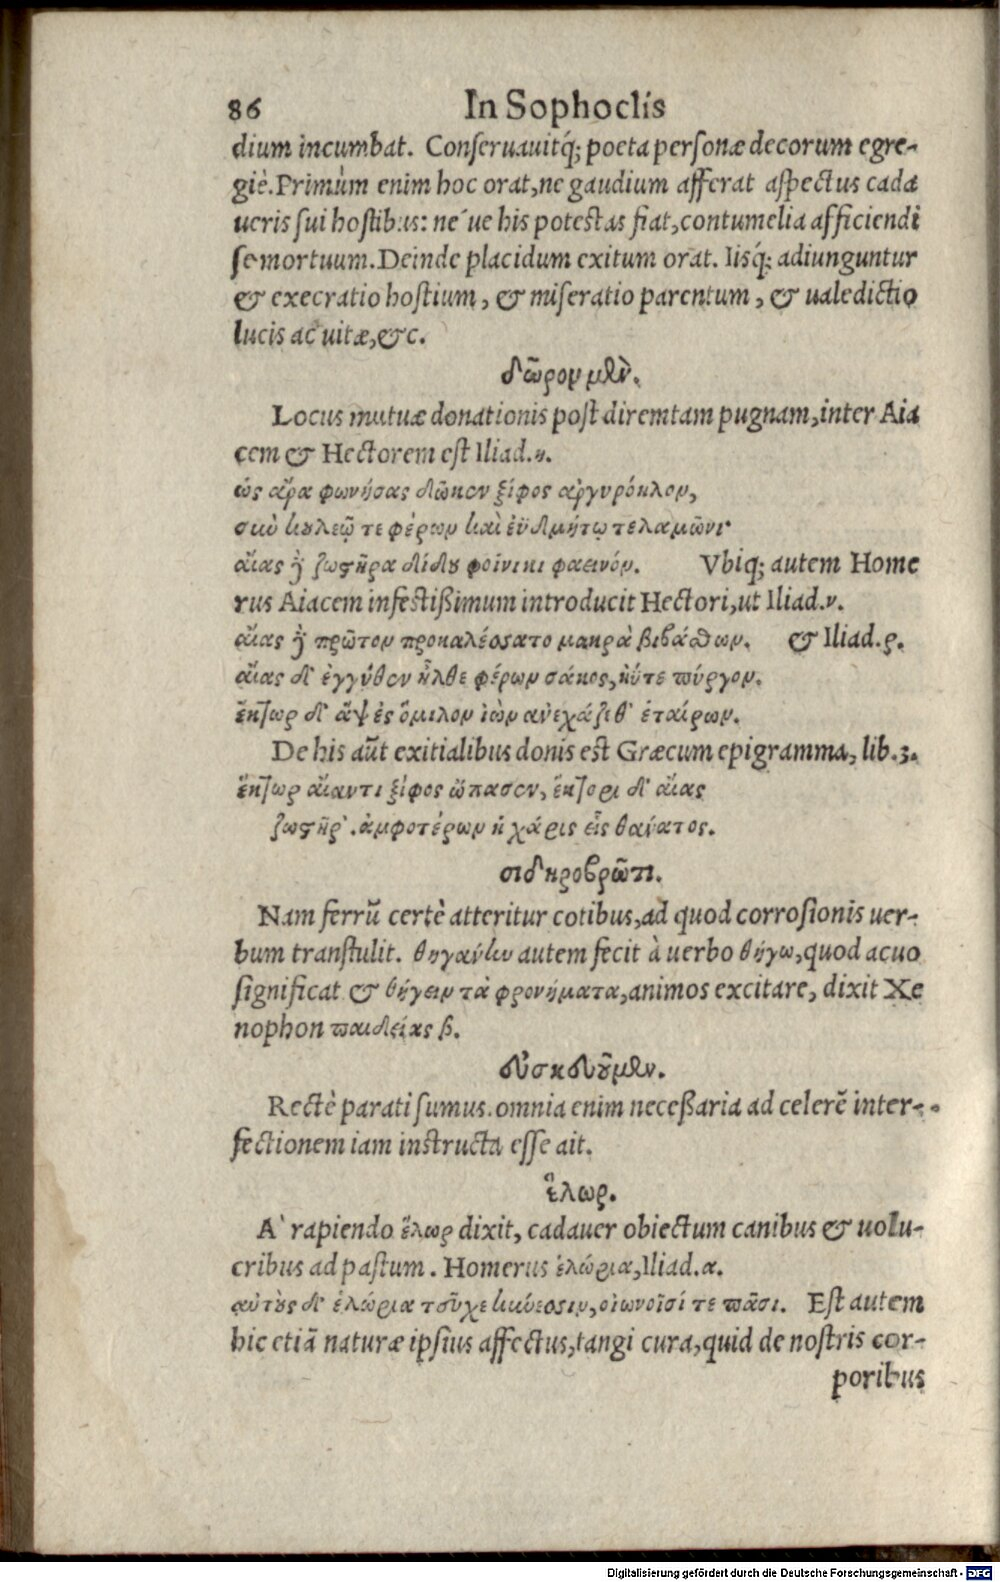 86 In Sophoclis
dium incumbat. Conseruauitq́; poeta personæ decorum egre-
giè. Primùm enim hoc orat, ne gaudium afferat aspectus cada
ueris sui hostibus: ne´ue his potestas fiat, contumelia afficiendi
se mortuum. Deinde placidum exitum orat. Iisq́; adiunguntur
& execratio hostium, & miseratio parentum, & ualedictio
lucis ac uitæ, &c.
δῶρον μὲν.
Locus mutuæ donationis post diremtam pugnam, inter Aia
cem & Hectorem est Iliad. η.
ὡς ἄρα φωνήσας δῶκεν ξίφος ἀργυρόηλον,
σὺν κουλεῷ τε φέρων καὶ ἐϋδμήτῳ τελαμῶνι·
αἴας δὲ ζωστῆρα δίδου φοίνικι φαεινόν. Vbiq; autem Home
rus Aiacem infestißimum introducit Hectori, ut Iliad. ν.
αἴας δὲ πρῶτον προκαλέσσατο μακρὰ βιβάσθων. & Iliad. ρ.
αἴας δ' ἐγγύθεν ἦλθε φέρων σάκος, ἠΰτε πύργον.
ἕκτωρ δ' ἂψ ἐς ὅμιλον ἰὼν ἀνεχάζεθ' ἑταίρων.
De his aūt exitialibus donis est Græcum epigramma, lib. 3.
ἕκτωρ αἴαντι ξίφος ὤπασεν, ἕκτορι δ' αἴας
ζωστῆρ'. ἀμφοτέρων ἡ χάρις εἷς θανάτος.
σιδηροβρῶτι.
Nam ferrū certè atteritur cotibus, ad quod corrosionis uer-
bum transtulit. θηγάνην autem fecit à uerbo θήγω, quod acuo
significat & θήγειν τὰ φρονήματα, animos excitare, dixit Xe
nophon παιδείας β.
εὐσκευοῦμεν.
Rectè parati sumus. omnia enim neceßaria ad celerē inter-
fectionem iam instructa esse ait.
ἕλωρ.
A` rapiendo ἕλωρ dixit, cadauer obiectum canibus & uolu-
cribus ad pastum. Homerus ἑλώρια, Iliad. α.
αὐτοὺς δ' ἑλώρια τεῦχε κύνεσσιν, οἰωνοῖσί τε πᾶσι. Est autem
hic etiā naturæ ipsius affectus, tangi cura, quid de nostris cor-
poribus
Digitalisierung gefördert durch die Deutsche Forschungsgemeinschaft - DFG